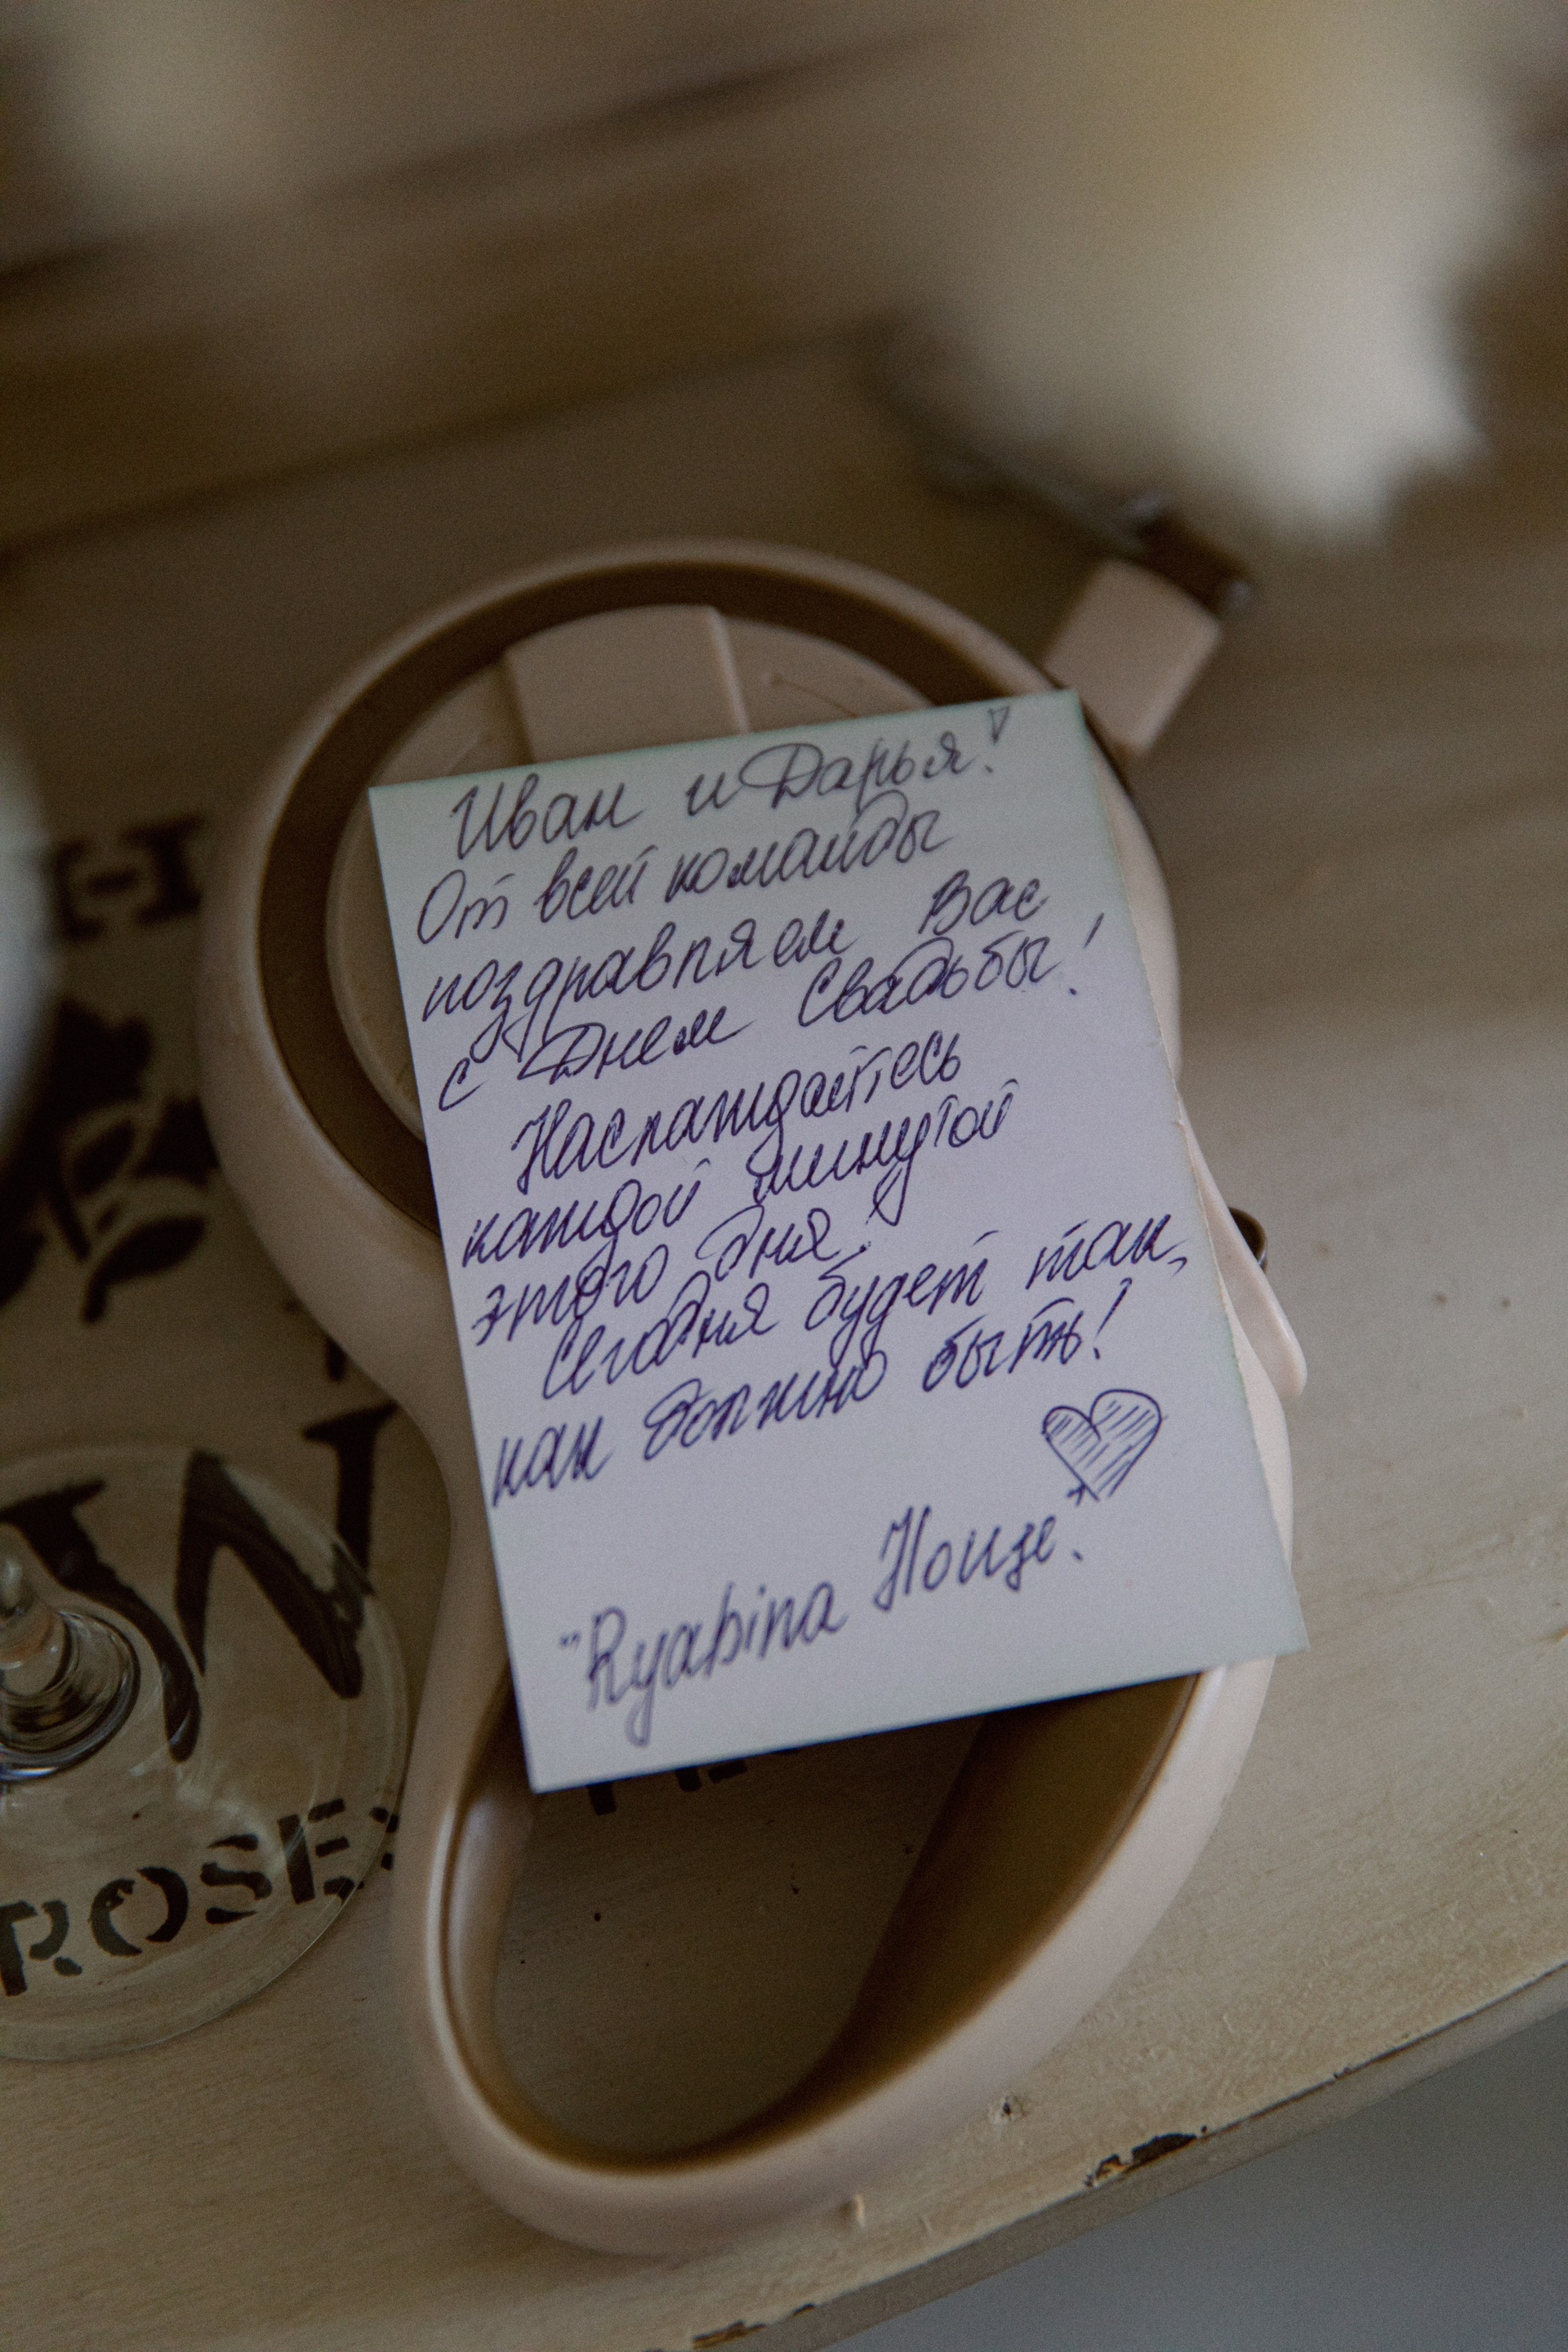 Иван и Дарья!
От всей команды
поздравляем Вас
с Днем Свадьбы!
Наслаждайтесь
каждой минутой
этого дня!
Сегодня будет так,
как должно быть!
"Ryabina House".
H
W
ROSE